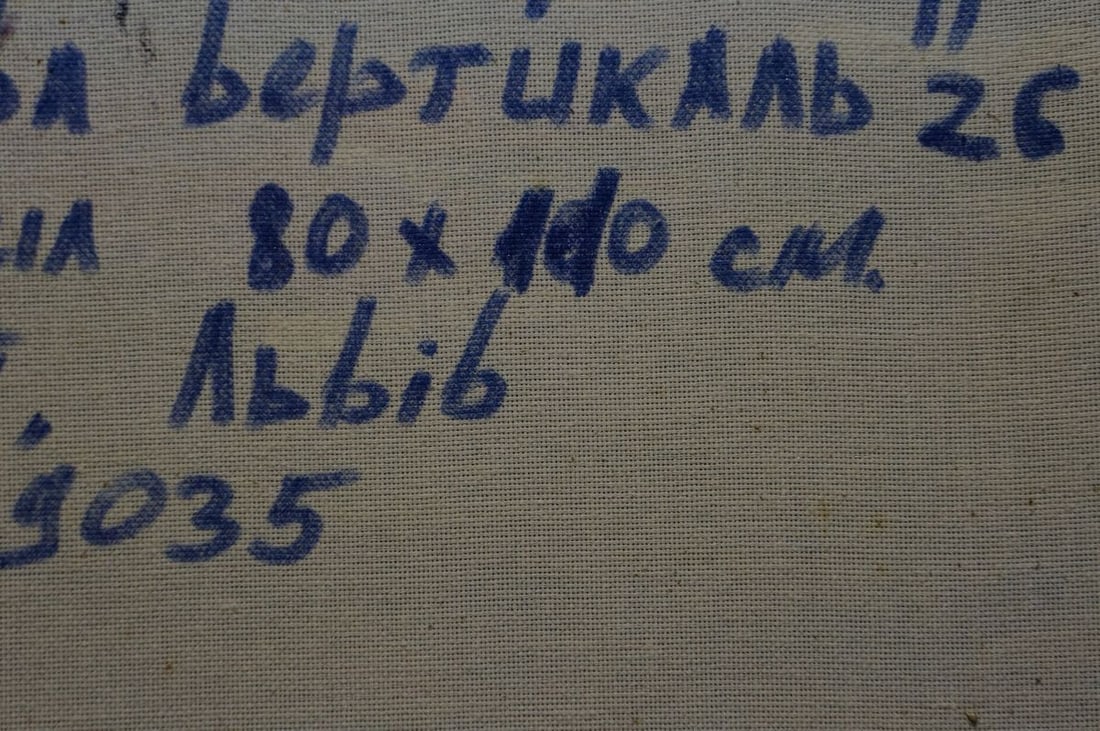 вертикаль" 26
80 х 110 см.
Львів
9035